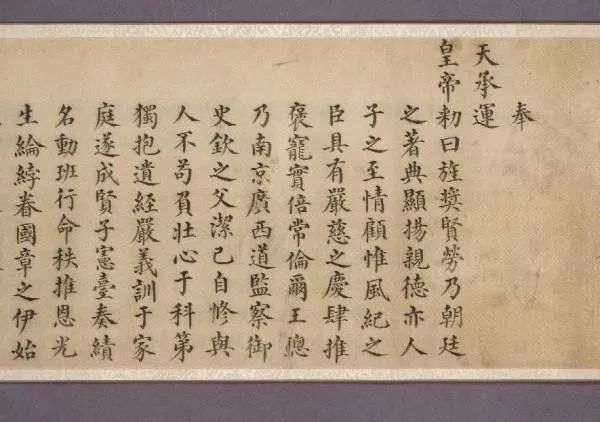 奉
天承運
皇帝勑曰旌奬賢勞乃朝廷
之著典顯揚親德亦人
子之至情顧惟風紀之
臣具有嚴慈之慶肆推
褒寵實倍常倫爾王聰
乃南京廣西道監察御
史欽之父潔己自修與
人不苟負壯心于科第
獨抱遺經嚴義訓于家
庭遂成賢子憲臺奏績
名動班行命秩推恩光
生綸綍眷國章之伊始